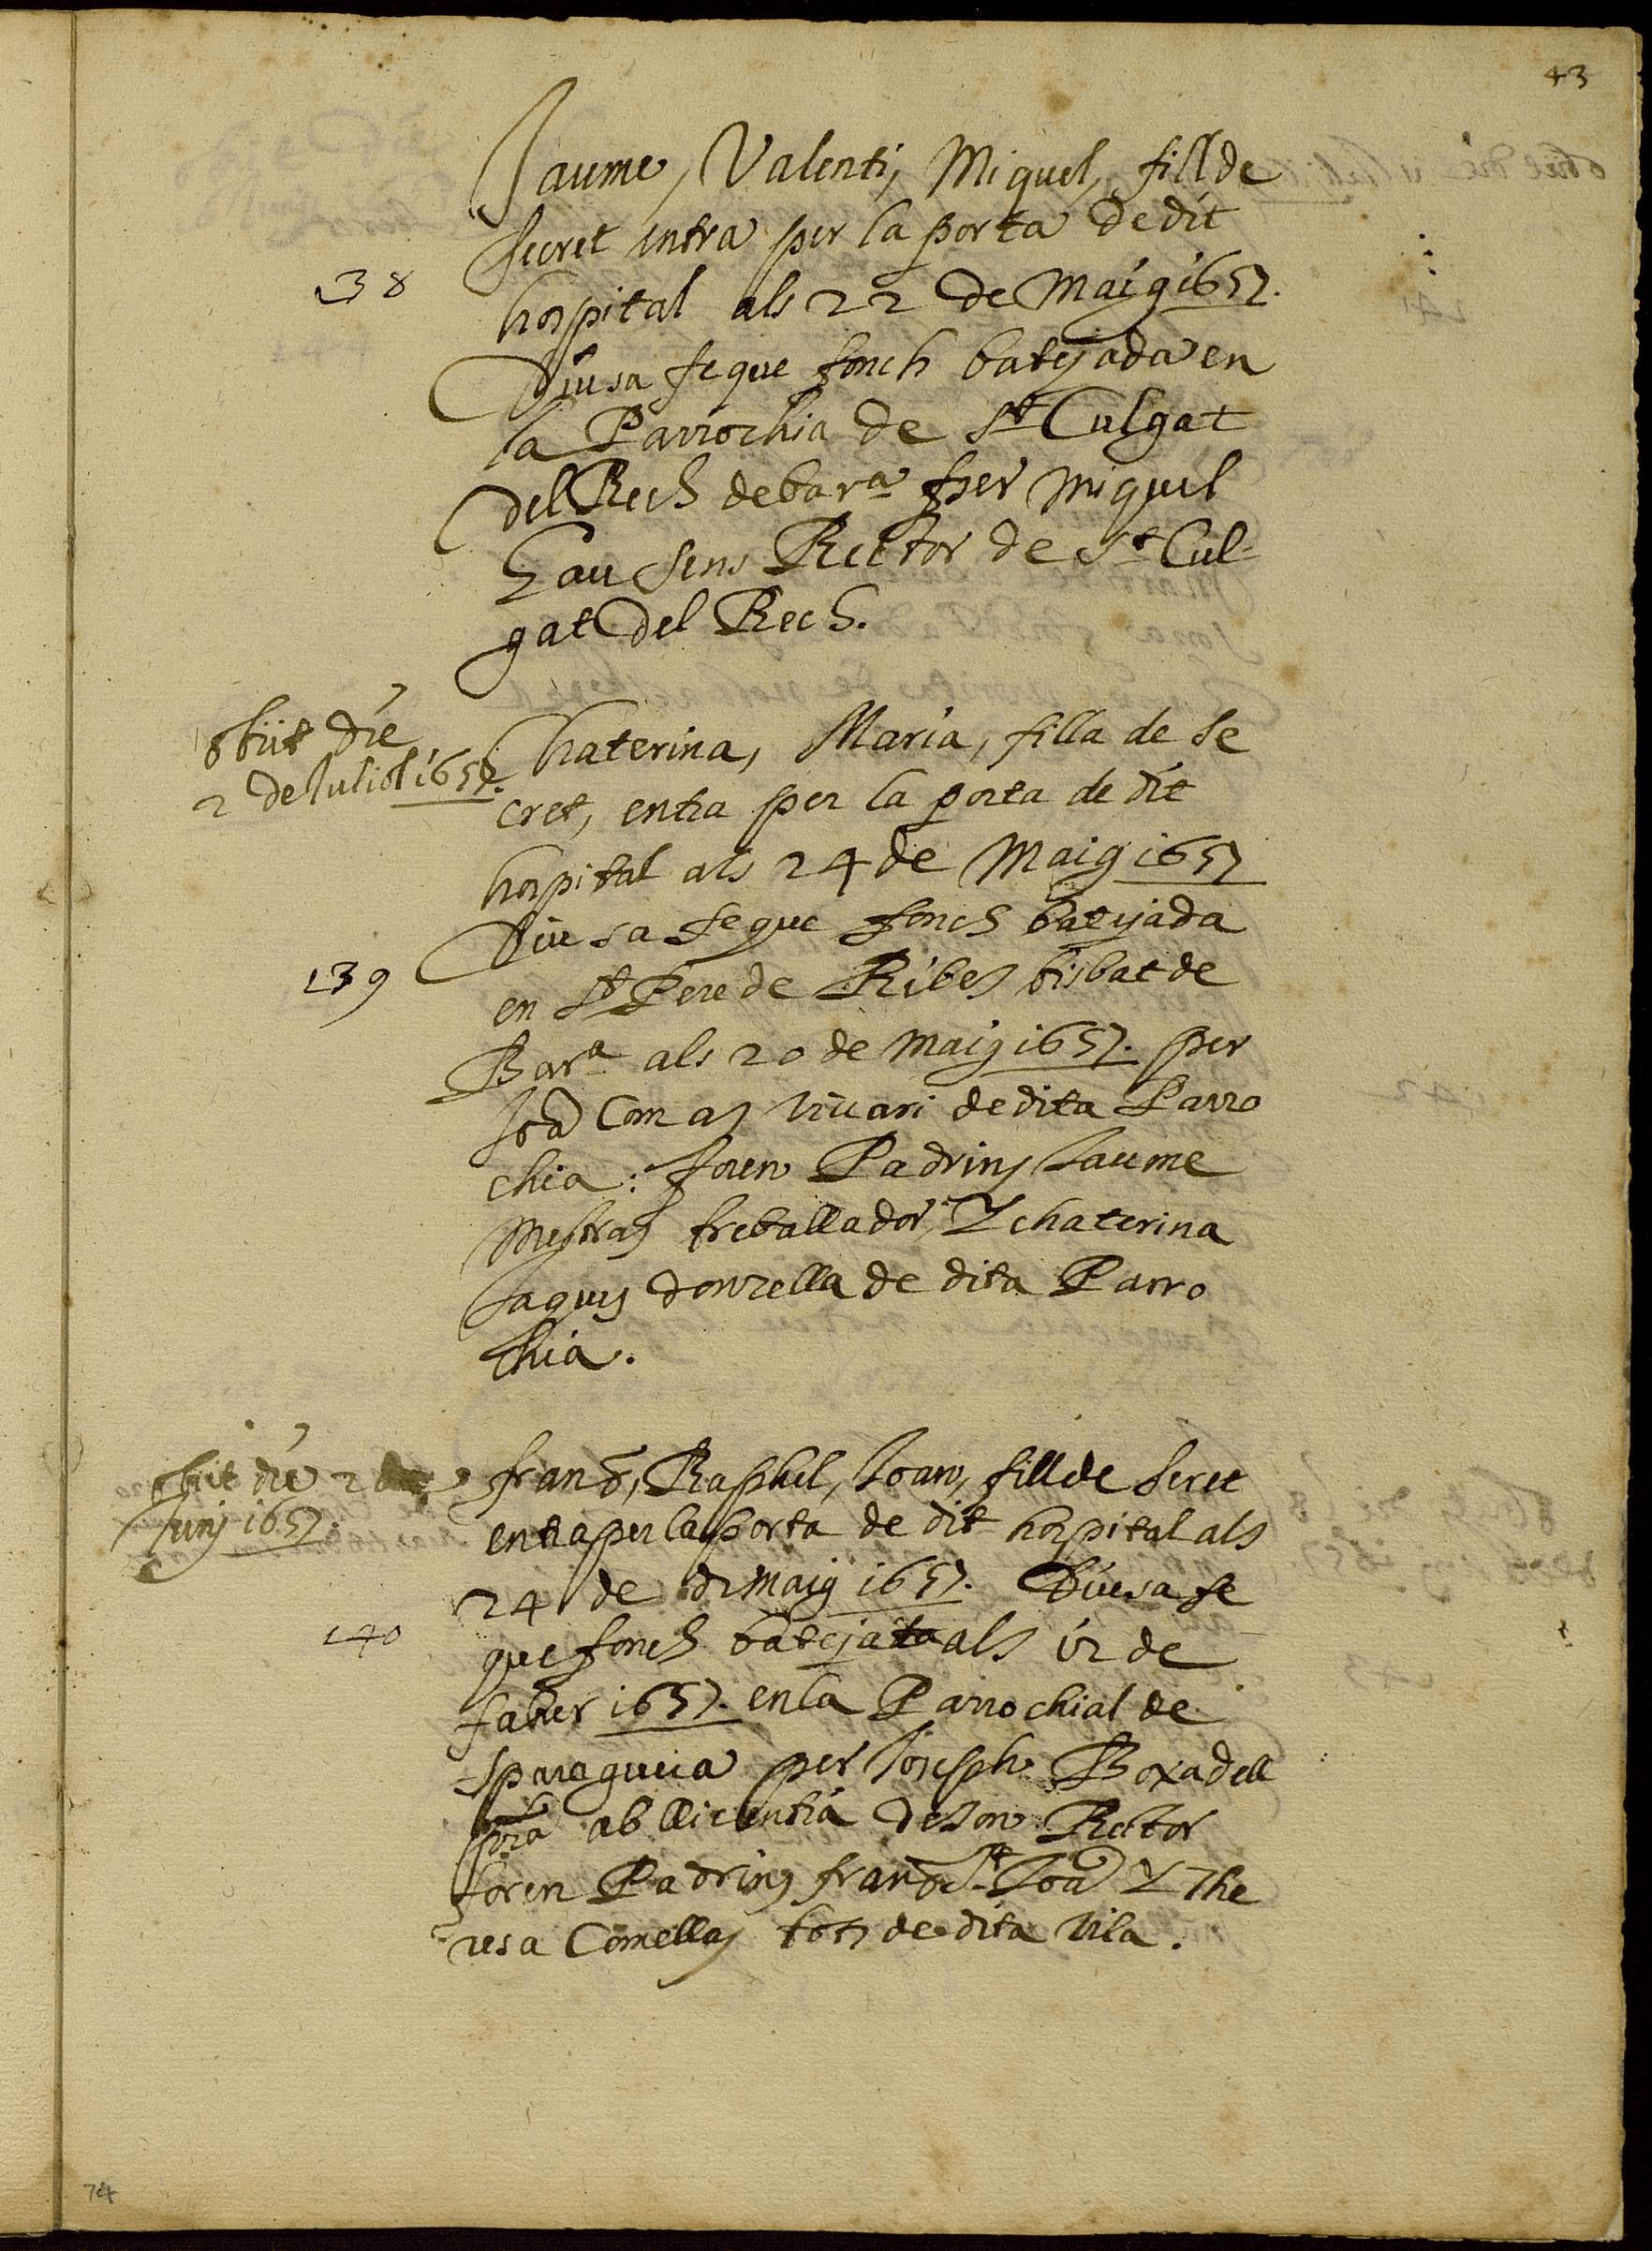 43
Jaume, Valenti, Miquel, fill de
secret intra per la porta de dit
138
hospital als 22 de Maig 1657.
Diu sa fe que fonch batejada en
la Parrochia de St Culgat
del Rech de bar.a per Miquel
Gausens Rector de St Cul-
gat del Rech.
obiit die
2 de Juliol 1657.
Chaterina, Maria, filla de se
cret, entra per la porta de dit
hospital als 24 de Maig 1657
Diu sa fe que fonch batejada
139
en St Pere de Ribes bisbat de
Bar.a als 20 de Maig 1657. per
Joã Comas vicari de dita Parro
chia: foren Padrins Jaume
Mestras treballador, Y chaterina
Jaques donzella de dita Parro
chia.
obiit die 2 de
Juny 1657.
franc, Raphel, Joan, fill de secret
entra per la porta de dit hospital als
24 de di maig 1657. Diu sa fe
140
que fonch batejata als 12 de
faber 1657. en la Parrochial de
sparaguera per Joseph Boxadell
pra ab llicentia de son Rector
foren Padrins franc St Joã Y The
resa Comellas tots de dita vila.
74